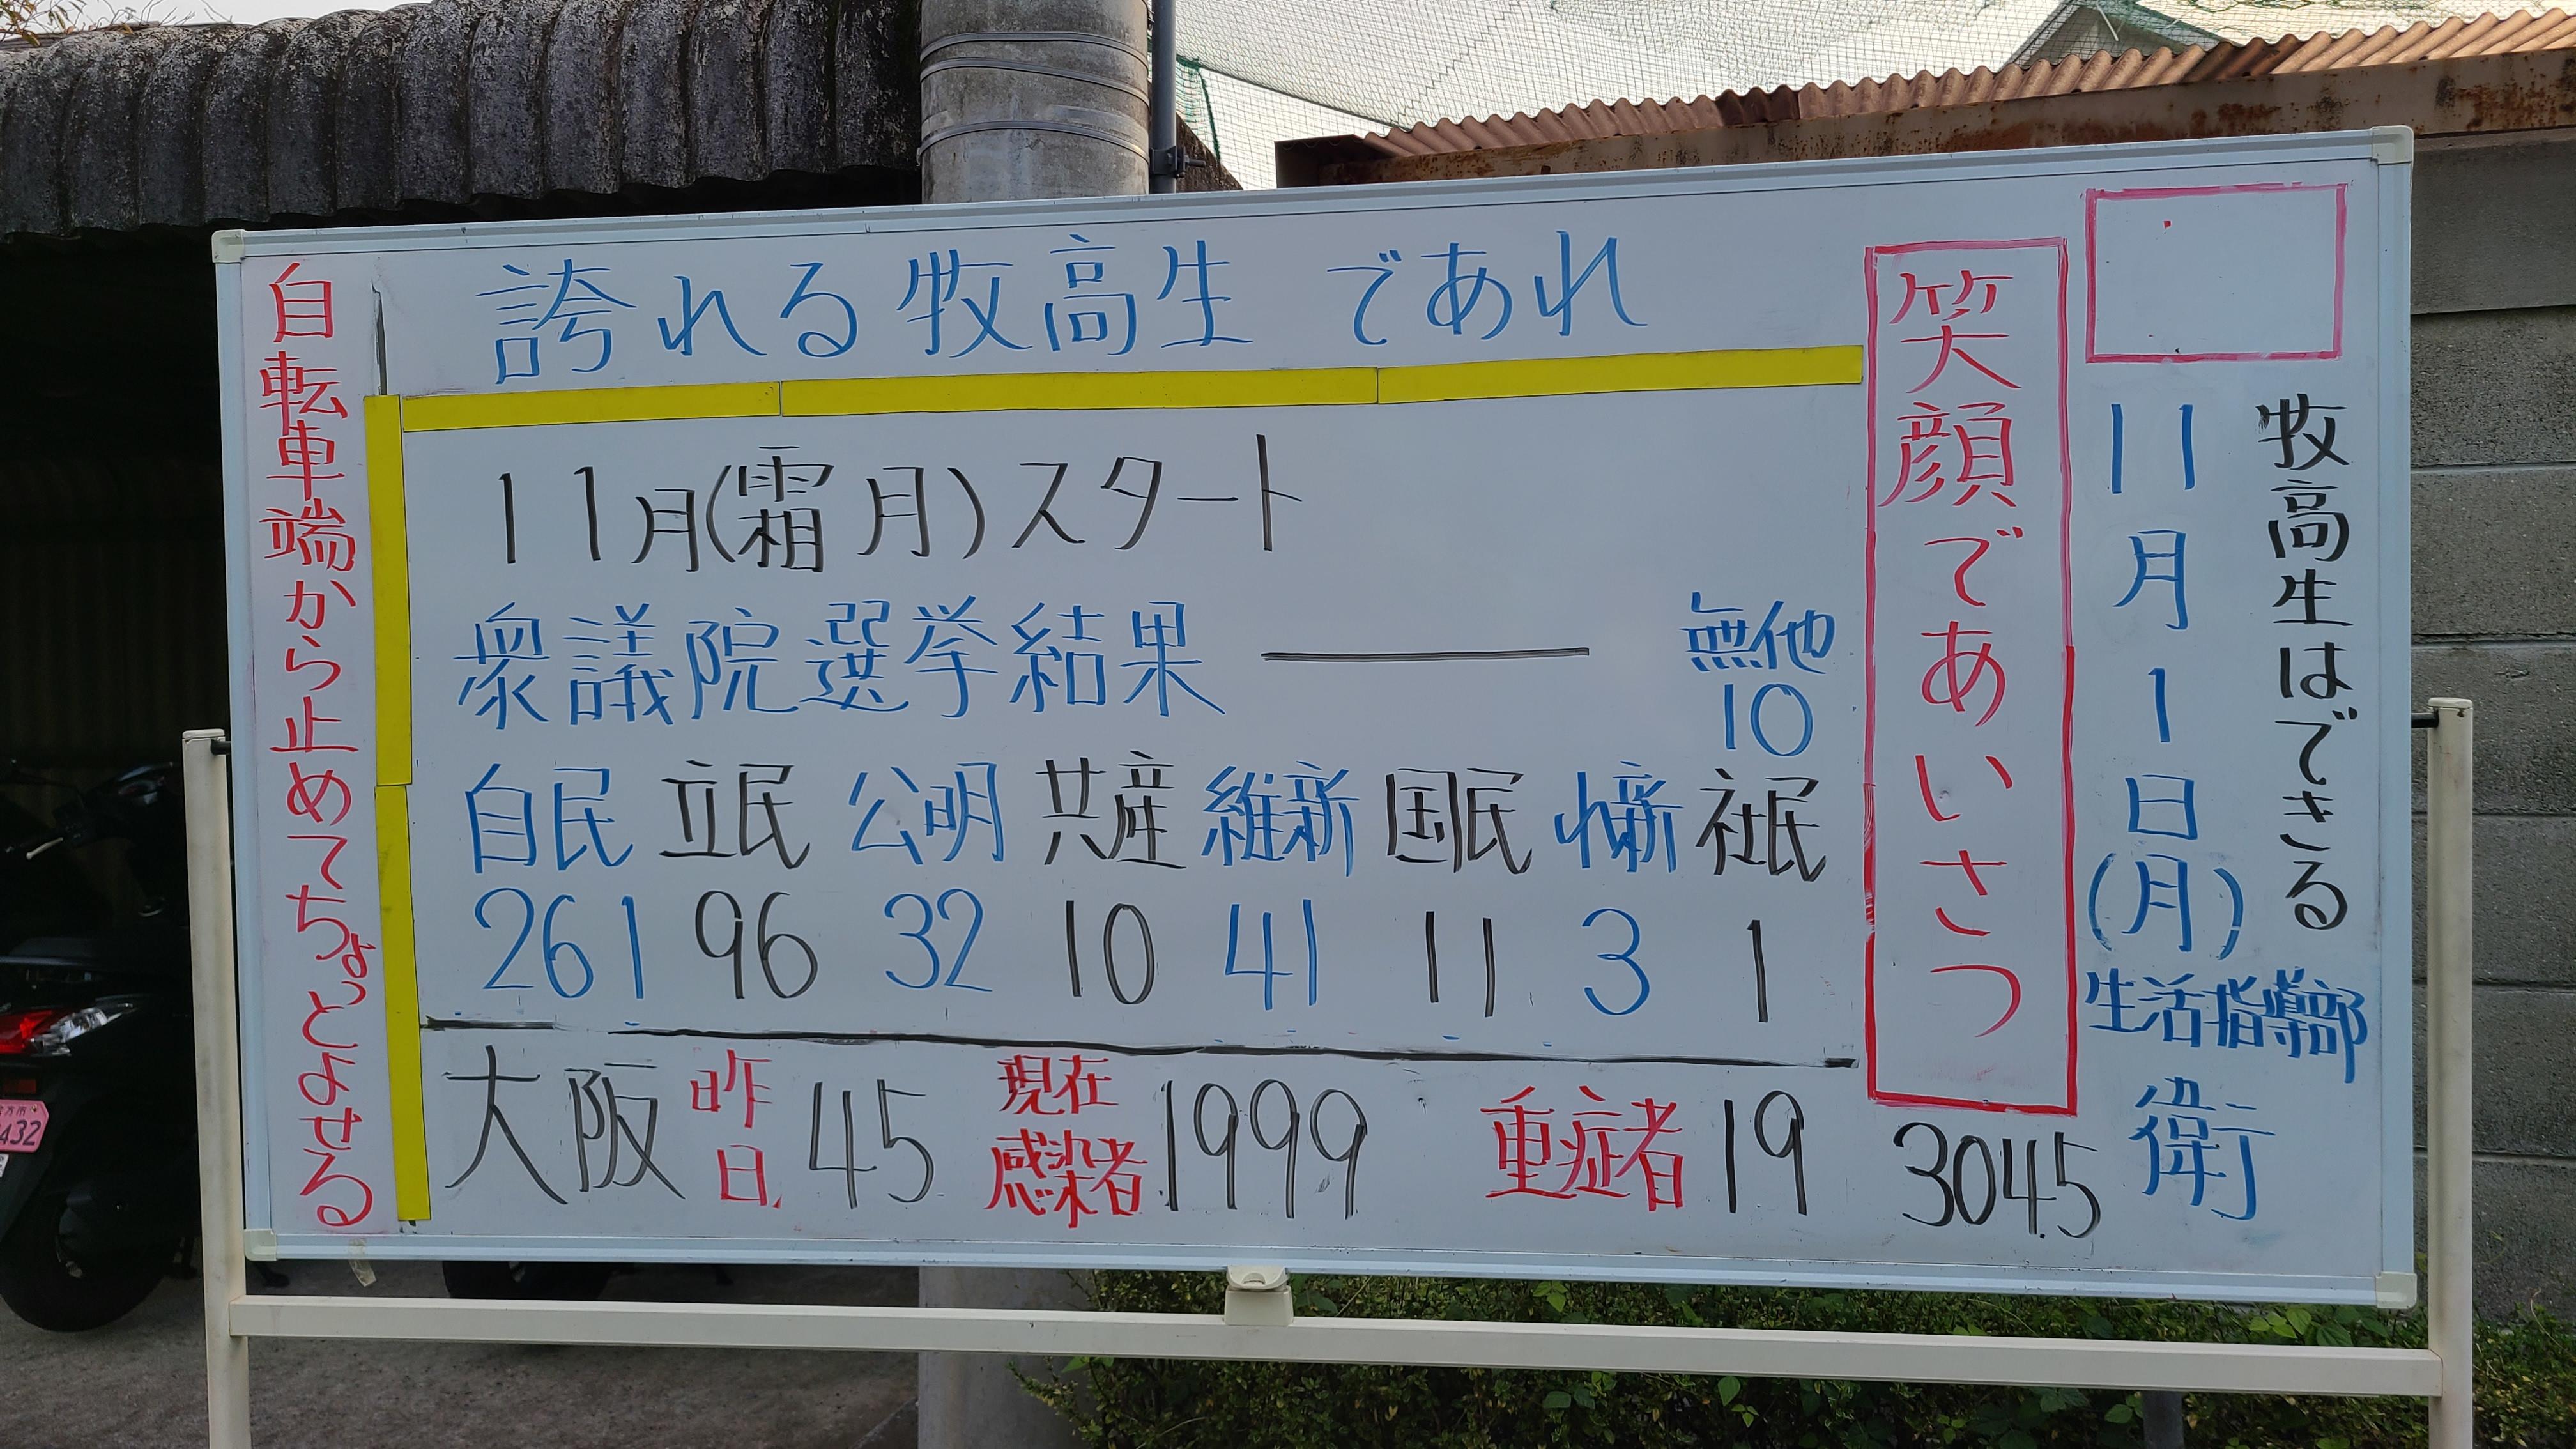 牧高生はできる
11月1日(月)
生活指導部
衛
笑顔であいさつ
3045
誇れる牧高生であれ
11月(霜月)スタート
衆議院選挙結果 ――
無他
10
自民 立民 公明 共産 維新 国民 れ新 社民
261 96 32 10 41 11 3 1
大阪 昨日 45 現在感染者 1999 重症者 19
自転車端から止めてちょっとよせる
432